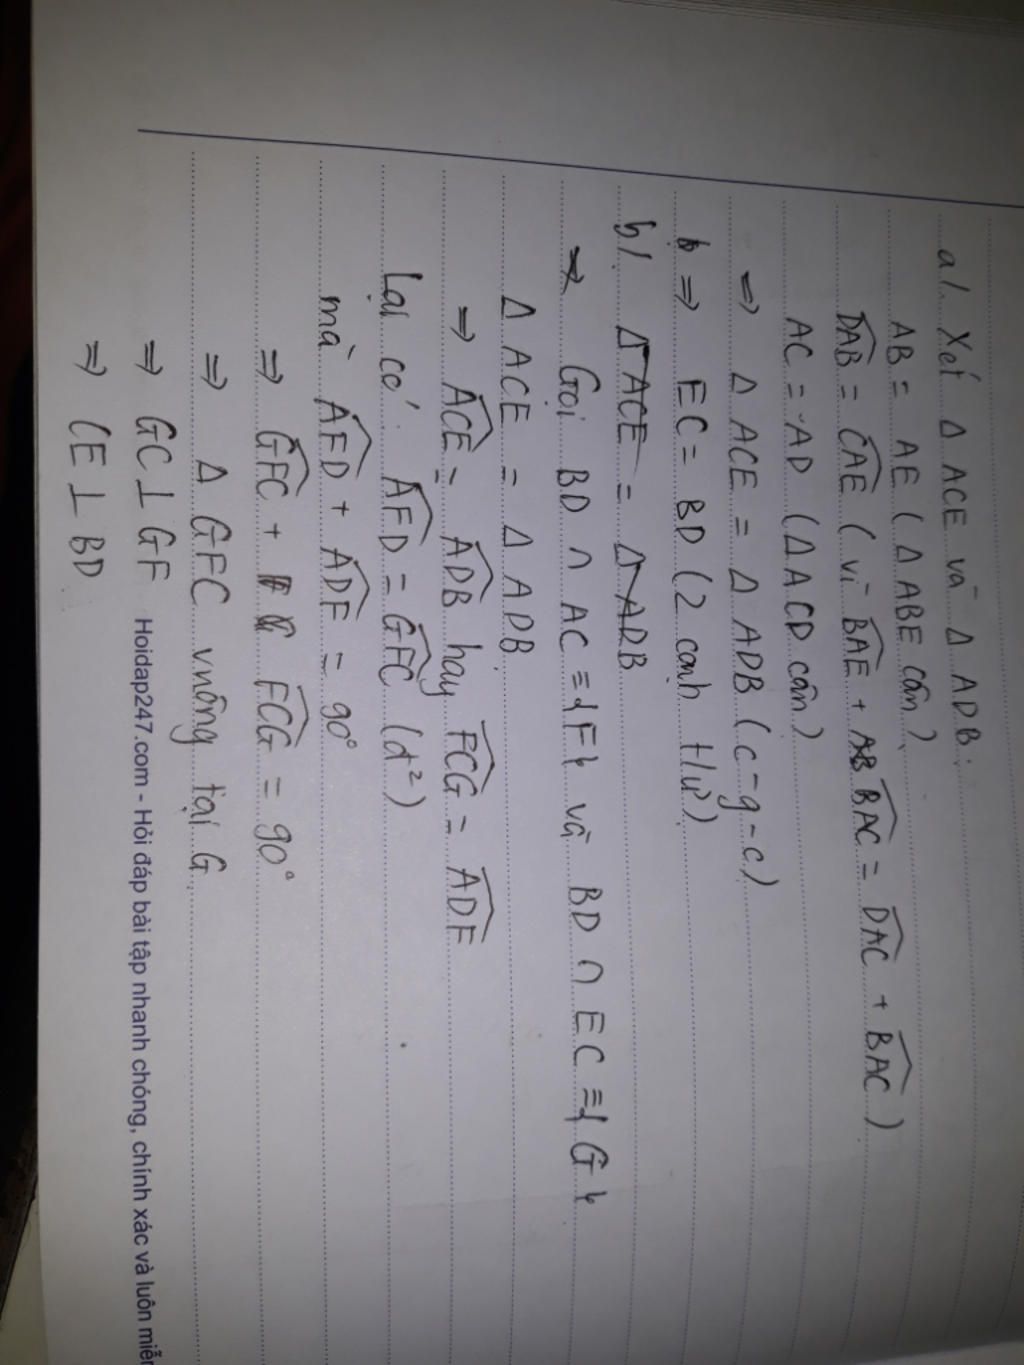 a/. Xét Δ ACE và Δ ADB:
AB = AE (Δ ABE cân)
DAB = CAE (vì BAE + BAC = DAC + BAC)
AC = AD (Δ ACD cân)
⇒ Δ ACE = Δ ADB (c-g-c)
⇒ EC = BD (2 cạnh t/ư)
b/ Δ ACE = Δ ADB
Gọi BD ∩ AC ≡ {F} và BD ∩ EC ≡ {G}
Δ ACE = Δ ADB
⇒ ACE = ADB hay FCG = ADF
Lại có AFD = GFC (đ²)
mà AFD + ADF = 90°
⇒ GFC + FCG = 90°
⇒ Δ GFC vuông tại G
⇒ GC ⊥ GF
⇒ CE ⊥ BD
Hoidap247.com - Hỏi đáp bài tập nhanh chóng, chính xác và luôn miễn